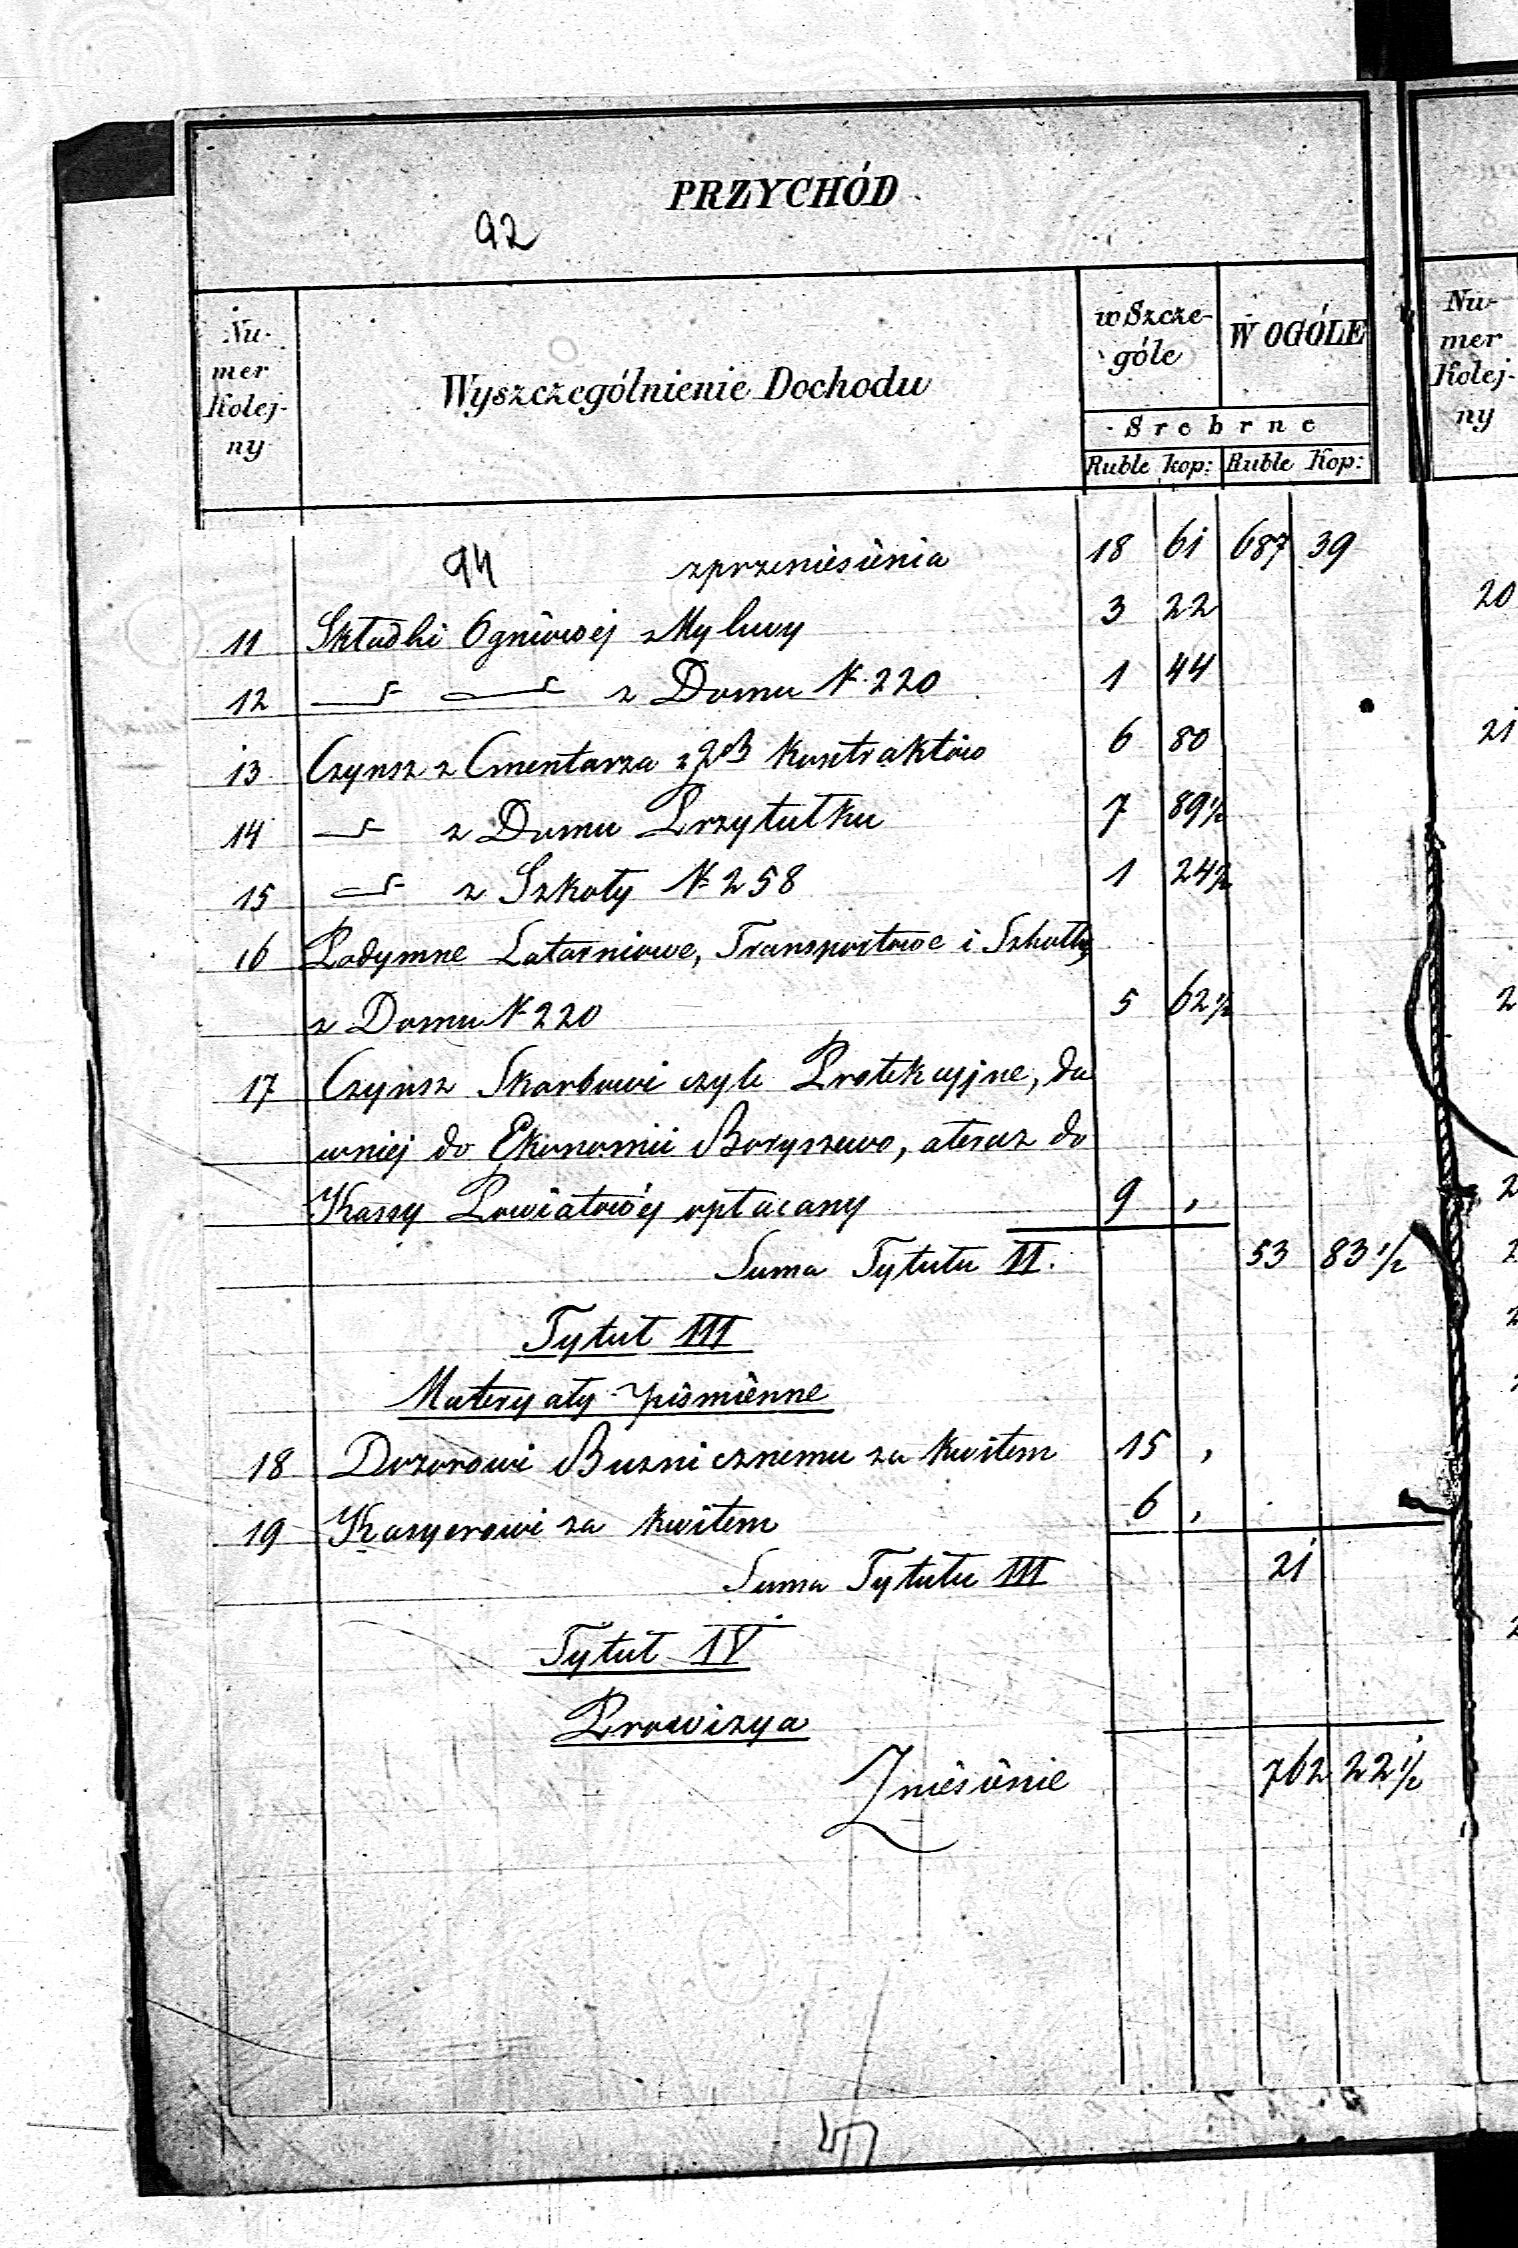 PRZYCHÓD
92
Nu-
mer
Kolej-
ny
Wyszczególnienie Dochodu
w Szcze-
góle
W OGÓLE
Srebrne
Ruble kop: Ruble Kop:
94 z przeniesienia 18 61 687 39
11 Składki Ogniowej z Mykwy 3 22
12 z Domu N. 220 1 44
13 Czynsz z Cmentarza z kontraktów 6 80
14 z Domu Przytułku 7 89½
15 z Szkoły N 258 1 24½
16 Podymne Latarniowe, Transportowe i Szkolne
z Domu N 220 5 62½
17 Czynsz Skarbowi czyli Protekcyjne, da
wniej do Ekonomii Boryszewo, a teraz do
Kassy Powiatowéj opłacany 9 ,
Suma Tytułu II. 53 83½
Tytuł III
Materyały piśmienne
18 Dozorowi Bużnicznemu za kwitem 15 ,
19 Kasyerowi za kwitem 6 ,
Suma Tytułu III 21
Tytuł IV
Prowizya
Zniesienie 762 22½
Nu-
mer
Kolej-
ny
20
21